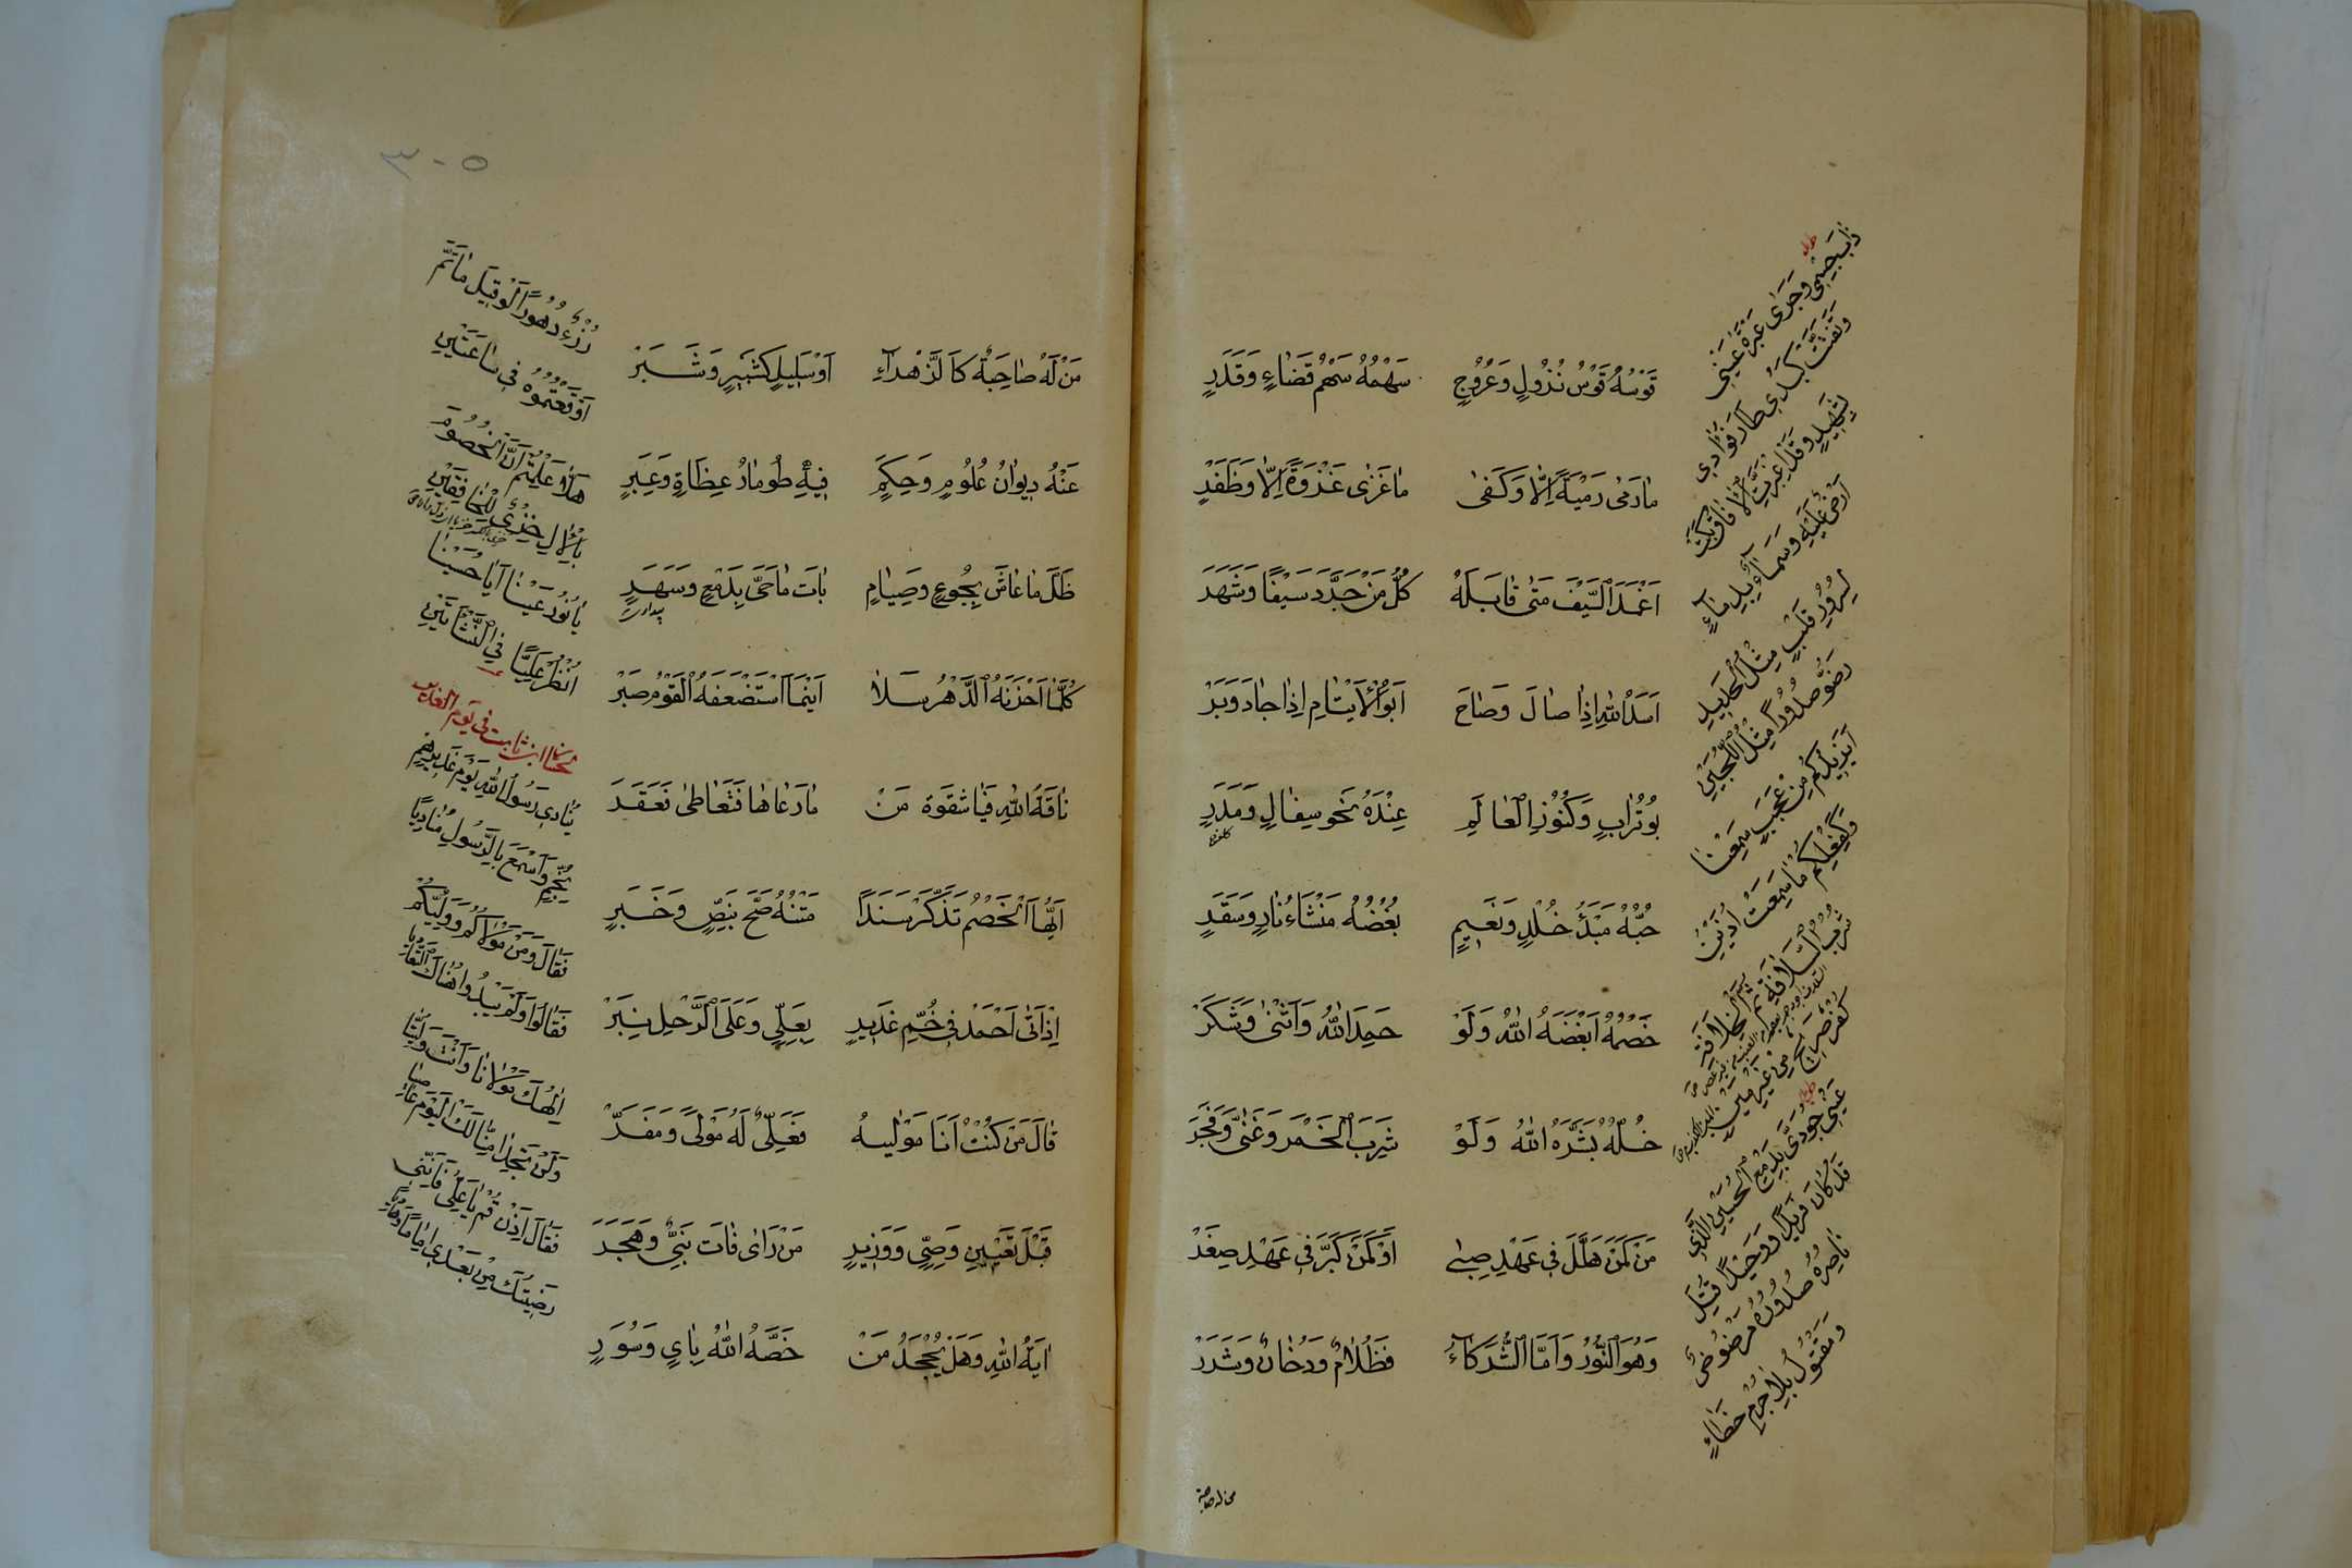 قَوْسُهُ قَوْسُ نُزُولٍ وَعُرُوجٍ سَهْمُهُ سَهْمُ قَضَاءٍ وَقَدَرٍ
مَا رَمىٰ رَمْيَةً اِلَّا وَكَفىٰ مَا غَزىٰ غَزْوَةً اِلَّا وَظَفَرٍ
اَغْمَدَ السَّيْفَ مَتىٰ قَابَلَهُ كُلُّ مَنْ جَرَّدَ سَيْفًا وَشَهَرَ
اَسَدُ اللهِ اِذَا صَالَ وَصَاحَ اَبُو الْاَيْتَامِ اِذَا جَادَ وَبَرَّ
بُوتُرَابٍ وَكُنُوزُ الْعَالَمِ عِنْدَهُ نَحْوُ سِفَالٍ وَمَدَرٍ
حُبُّهُ مَبْدَءُ خُلْدٍ وَنَعِيمٍ بُغْضُهُ مَنْشَاءُ نَارٍ وَسَقَرٍ
خَصْمُهُ اَبْغَضَهُ اللهُ وَلَوْ حَمِدَ اللهَ وَاَثْنىٰ وَشَكَرَ
خِلُّهُ بَشَّرَهُ اللهُ وَلَوْ شَرِبَ الْخَمْرَ وَغَنّىٰ وَفَجَرَ
مَنْ كَمَنْ هَلَّلَ فِي عَهْدِ صِبىٰ اَوْ كَمَنْ كَبَّرَ فِي عَهْدِ صِغَرْ
وَهُوَ النُّورُ وَاَمَّا الشُّرَكَآءُ فَظَلَامٌ وَدُخَانٌ وَشَرَرْ
من له صاحبة
ذَابَ جِسْمِي وَجَرىٰ عَبْرَةُ عَيْنِي
وَتَفَتَّتْ كَبَدِي طَارَ فُؤَادِي
لِشَهِيدٍ
اَرْضٌ عَلَيْهِ وَسَمَآءٌ بِدِمَآءٍ
اَيُّ زَيْدِكُمْ مِنْ عَجَبٍ سَمِعْنَا
وَيَكْفِيكُمْ مَا سَمِعَتْ اُذُنَيْنِ
عَيْنِ جُودِي بِدَمْعِ الْحُسَيْنِ الَّذِي
قَدْ كَانَ فَرِيدًا وَوَحِيدًا قُتِلَ
نَاصِرُهُ صُدُورُهُ مَرْضُوضٌ
وَمَقْتُولٌ بِلَا جُرْمٍ خَطَاءٍ
٣٠٥
مَنْ لَهُ صَاحِبَةٌ كَالزَّهْرَآءِ اَوْ سَلِيلٍ كَشَبِيرٍ وَشَبَرْ
عَنْهُ دِيوَانُ عُلُومٍ وَحِكَمٍ فِيهِ طُومَارُ عِظَاتٍ وَعِبَرٍ
ظَلَّ مَا عَاشَ بِجُوعٍ وَصِيَامٍ بَاتَ مَا حَيَّ بِدَمْعٍ وَسَهَرٍ
كُلَّمَا اَحْزَنَهُ الدَّهْرُ سَلَا اَيْنَمَا اسْتَضْعَفَهُ الْقَوْمُ صَبَرْ
نَاقَةُ اللهِ فَيَا شِقْوَةَ مَنْ مَا رَعَاهَا فَتَعَاطىٰ فَعَقَرَ
اَيُّهَا الْخَصْمُ تَذَكَّرْ سَنَدًا مَتْنُهُ صَحَّ بِنَصٍّ وَخَبَرٍ
اِذْ اَتىٰ اَحْمَدُ فِي خُمِّ غَدِيرٍ بِعَلِيٍّ وَعَلَى الرَّحْلِ نَبَرْ
قَالَ مَنْ كُنْتُ اَنَا مَوْلَيهُ فَعَلِيٌّ لَهُ مَوْلىً وَمَفَرّْ
قَبْلَ تَعْيِينِ وَصِيٍّ وَوَزِيرٍ مَنْ رَاىٰ فَاتَ نَبِيٌّ وَهَجَرَ
اٰيَةُ اللهِ وَهَلْ يُجْحَدُ مَنْ خَصَّهُ اللهُ بِاٰيٍ وَسُوَرٍ
رُزْءُ دُهُورًا لَوْ قِيلَ مَا تَمَّ
اَوْقَعْتُمُوهُ فِي سَاعَتَيْنِ
هَلَّا عَلِمْتُمْ اَنَّ الْخُصُومَ
يَا نُورَ عَيْنَا اَيَا حُسَيْنَا
اُنْظُرْ عَلِيًّا فِي النَّشْأَتَيْنِ
حسان ابن ثابت في يوم الغدير
يُنَادِي رَسُولُ اللهِ يَوْمَ غَدِيرِهِمْ
بِخُمٍّ وَاَسْمَعَ بِالرَّسُولِ مُنَادِيًا
فَقَالَ وَمَنْ مَوْلَاكُمْ وَوَلِيُّكُمْ
فَقَالُوا وَلَمْ يَبْدُوا هُنَاكَ التَّعَادِيَا
اِلٰهُكَ مَوْلَانَا وَاَنْتَ وَلِيُّنَا
وَلَنْ تَجِدَنْ مِنَّا لَكَ الْيَوْمَ عَاصِيَا
فَقَالَ اِذَنْ قُمْ يَا عَلِيُّ فَاِنَّنِي
رَضِيتُكَ مِنْ بَعْدِي اِمَامًا وَهَادِيًا